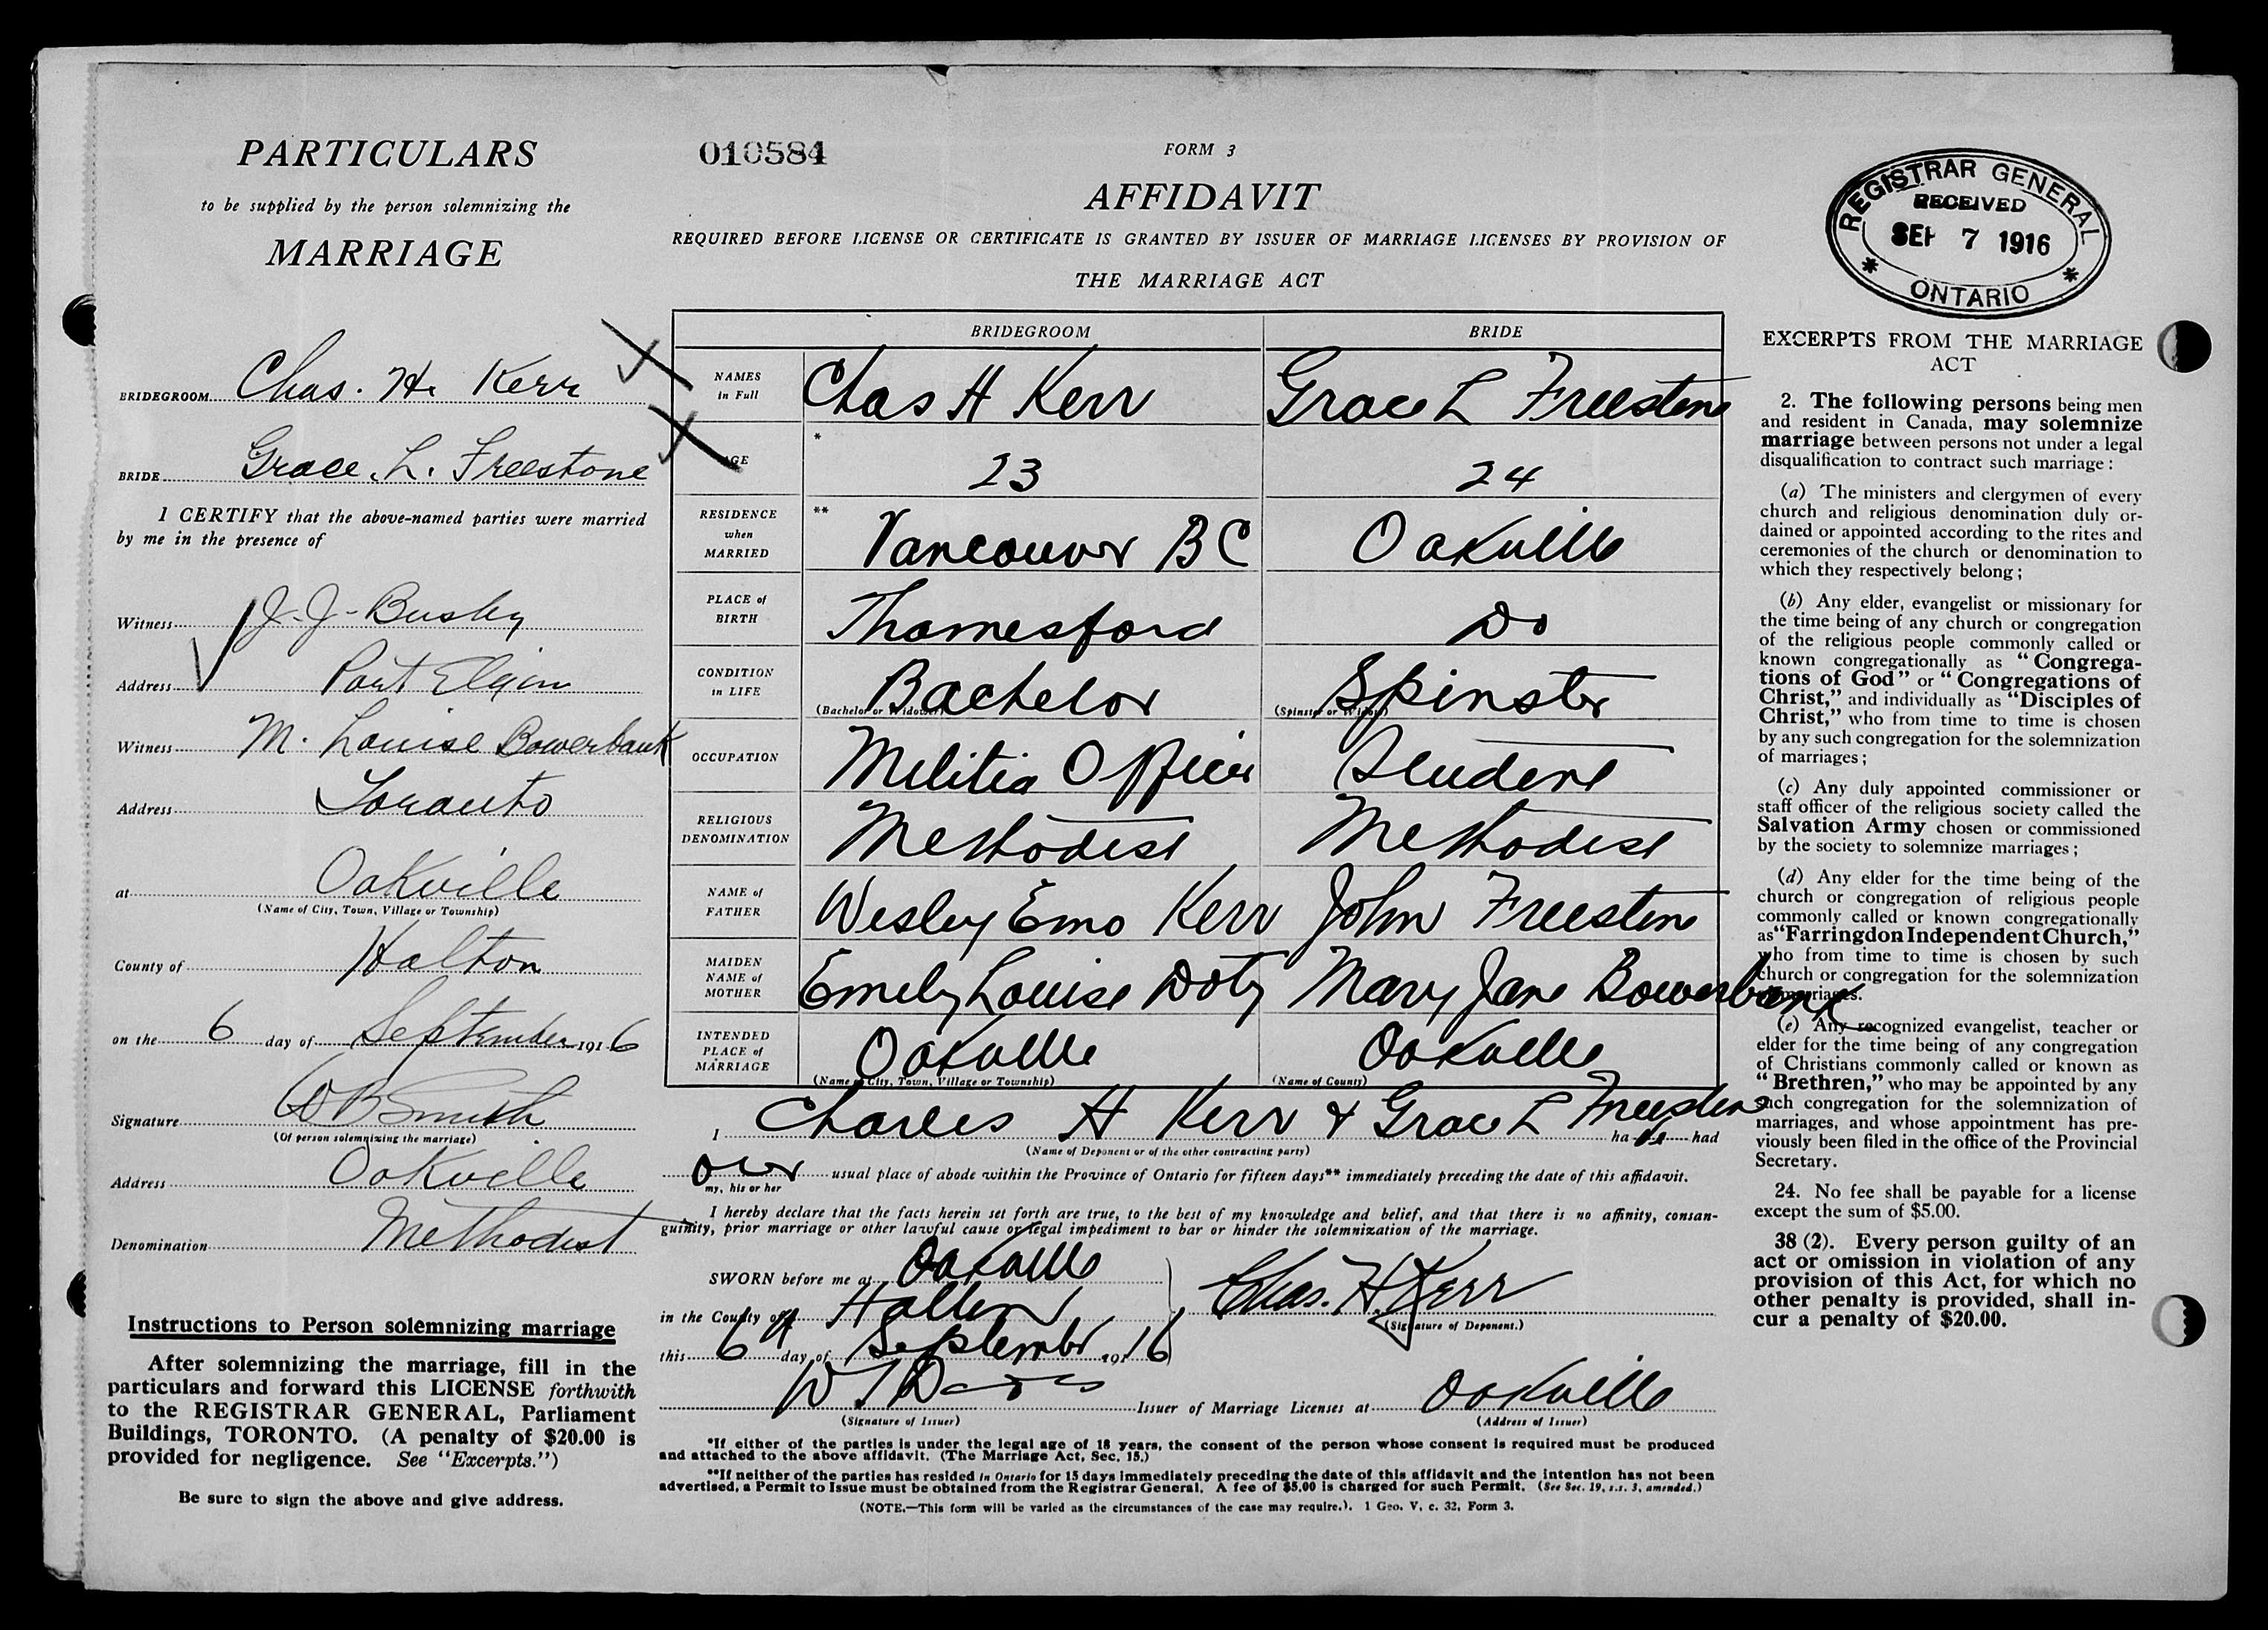 PARTICULARS
to be supplied by the person solemnizing the
MARRIAGE
BRIDEGROOM Chas. H. Kerr
BRIDE Grace. L. Freestone
I CERTIFY that the above-named parties were married
by me in the presence of
Witness J. J. Busby
Address Port Elgin
Witness M. Louise Bowerbank
Address Toronto
at Oakville
(Name of City, Town, Village or Township)
County of Halton
on the 6 day of September 1916
Signature Smith
(Of person solemnizing the marriage)
Address Oakville
Denomination Methodist
Instructions to Person solemnizing marriage
After solemnizing the marriage, fill in the
particulars and forward this LICENSE forthwith
to the REGISTRAR GENERAL, Parliament
Buildings, TORONTO. (A penalty of $20.00 is
provided for negligence. See "Excerpts.")
Be sure to sign the above and give address.
010584
FORM 3
AFFIDAVIT
REQUIRED BEFORE LICENSE OR CERTIFICATE IS GRANTED BY ISSUER OF MARRIAGE LICENSES BY PROVISION OF
THE MARRIAGE ACT
BRIDEGROOM BRIDE
NAMES in Full Chas H Kerr Grace L Freestone
AGE * 23 24
RESIDENCE when MARRIED ** Vancouver BC Oakville
PLACE of BIRTH Thamesford Do
CONDITION in LIFE Bachelor Spinster
(Bachelor or Widower) (Spinster or Widow)
OCCUPATION Militia Officer Student
RELIGIOUS DENOMINATION Methodist Methodist
NAME of FATHER Wesley Emo Kerr John Freestone
MAIDEN NAME of MOTHER Emely Louise Doty Mary Jane Bowerbank
INTENDED PLACE of MARRIAGE Oakville Oakville
(Name of City, Town, Village or Township) (Name of County)
I Charles H Kerr & Grace L Freestone ha had
(Name of Deponent or of the other contracting party)
our usual place of abode within the Province of Ontario for fifteen days** immediately preceding the date of this affidavit.
my, his or her
I hereby declare that the facts herein set forth are true, to the best of my knowledge and belief, and that there is no affinity, consan-
guinity, prior marriage or other lawful cause or legal impediment to bar or hinder the solemnization of the marriage.
SWORN before me at Oakville
in the County of Halton
Chas. H. Kerr
(Signature of Deponent.)
this 6 day of September 1916
W
(Signature of Issuer)
Issuer of Marriage Licenses at Oakville
(Address of Issuer)
*If either of the parties is under the legal age of 18 years, the consent of the person whose consent is required must be produced
and attached to the above affidavit. (The Marriage Act, Sec. 15.)
**If neither of the parties has resided in Ontario for 15 days immediately preceding the date of this affidavit and the intention has not been
advertised, a Permit to Issue must be obtained from the Registrar General. A fee of $5.00 is charged for such Permit. (See Sec. 19, s.s. 3, amended.)
(NOTE.—This form will be varied as the circumstances of the case may require.). 1 Geo. V, c. 32, Form 3.
REGISTRAR GENERAL
RECEIVED
SEP 7 1916
* ONTARIO *
EXCERPTS FROM THE MARRIAGE
ACT
2. The following persons being men
and resident in Canada, may solemnize
marriage between persons not under a legal
disqualification to contract such marriage:
(a) The ministers and clergymen of every
church and religious denomination duly or-
dained or appointed according to the rites and
ceremonies of the church or denomination to
which they respectively belong;
(b) Any elder, evangelist or missionary for
the time being of any church or congregation
of the religious people commonly called or
known congregationally as "Congrega-
tions of God" or "Congregations of
Christ," and individually as "Disciples of
Christ," who from time to time is chosen
by any such congregation for the solemnization
of marriages;
(c) Any duly appointed commissioner or
staff officer of the religious society called the
Salvation Army chosen or commissioned
by the society to solemnize marriages;
(d) Any elder for the time being of the
church or congregation of religious people
commonly called or known congregationally
as "Farringdon Independent Church,"
who from time to time is chosen by such
church or congregation for the solemnization
of marriages.
(e) Any recognized evangelist, teacher or
elder for the time being of any congregation
of Christians commonly called or known as
"Brethren," who may be appointed by any
such congregation for the solemnization of
marriages, and whose appointment has pre-
viously been filed in the office of the Provincial
Secretary.
24. No fee shall be payable for a license
except the sum of $5.00.
38 (2). Every person guilty of an
act or omission in violation of any
provision of this Act, for which no
other penalty is provided, shall in-
cur a penalty of $20.00.